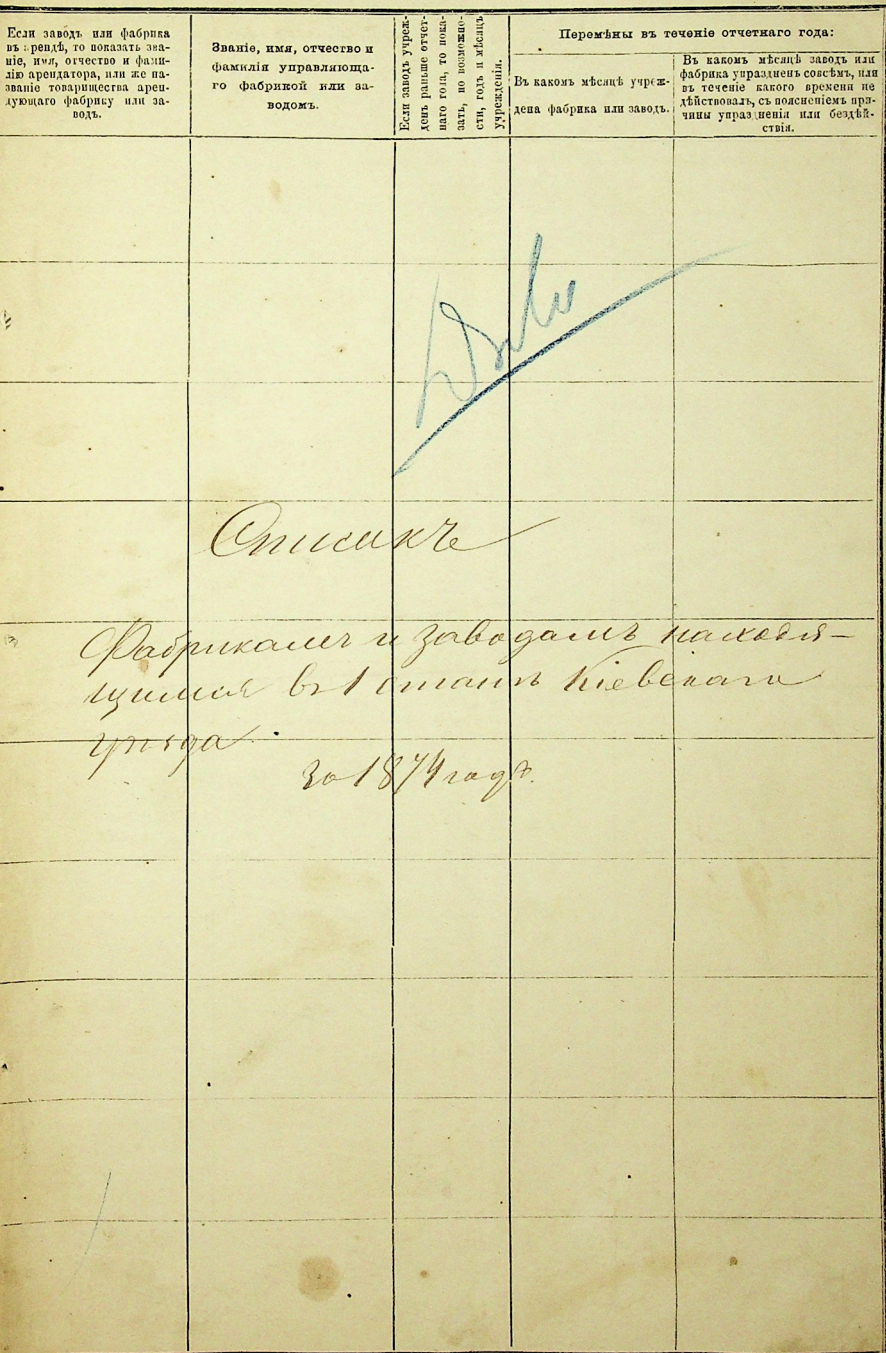 Если заводъ или фабрика
въ арендѣ, то показать зва-
ніе, имя, отчество и фами-
лію арендатора, или же на-
званіе товарищества арен-
дующаго фабрику или за-
водъ.
Званіе, имя, отчество и
фамилія управляюща-
го фабрикой или за-
водомъ.
Если заводъ учреж-
денъ раньше отчет-
наго года, то пока-
зать, по возможно-
сти, годъ и мѣсяцъ
учрежденія.
Перемѣны въ теченіе отчетнаго года:
Въ какомъ мѣсяцѣ учреж-
дена фабрика или заводъ.
Въ какомъ мѣсяцѣ заводъ или
фабрика упраздненъ совсѣмъ, или
въ теченіе какого времени не
дѣйствовалъ, съ поясненіемъ при-
чины упраздненія или бездѣй-
ствія.
Списокъ
Фабрикамъ и заводамъ находя-
щимся въ 1 станѣ Кіевскаго
уѣзда
За 1874 годъ.